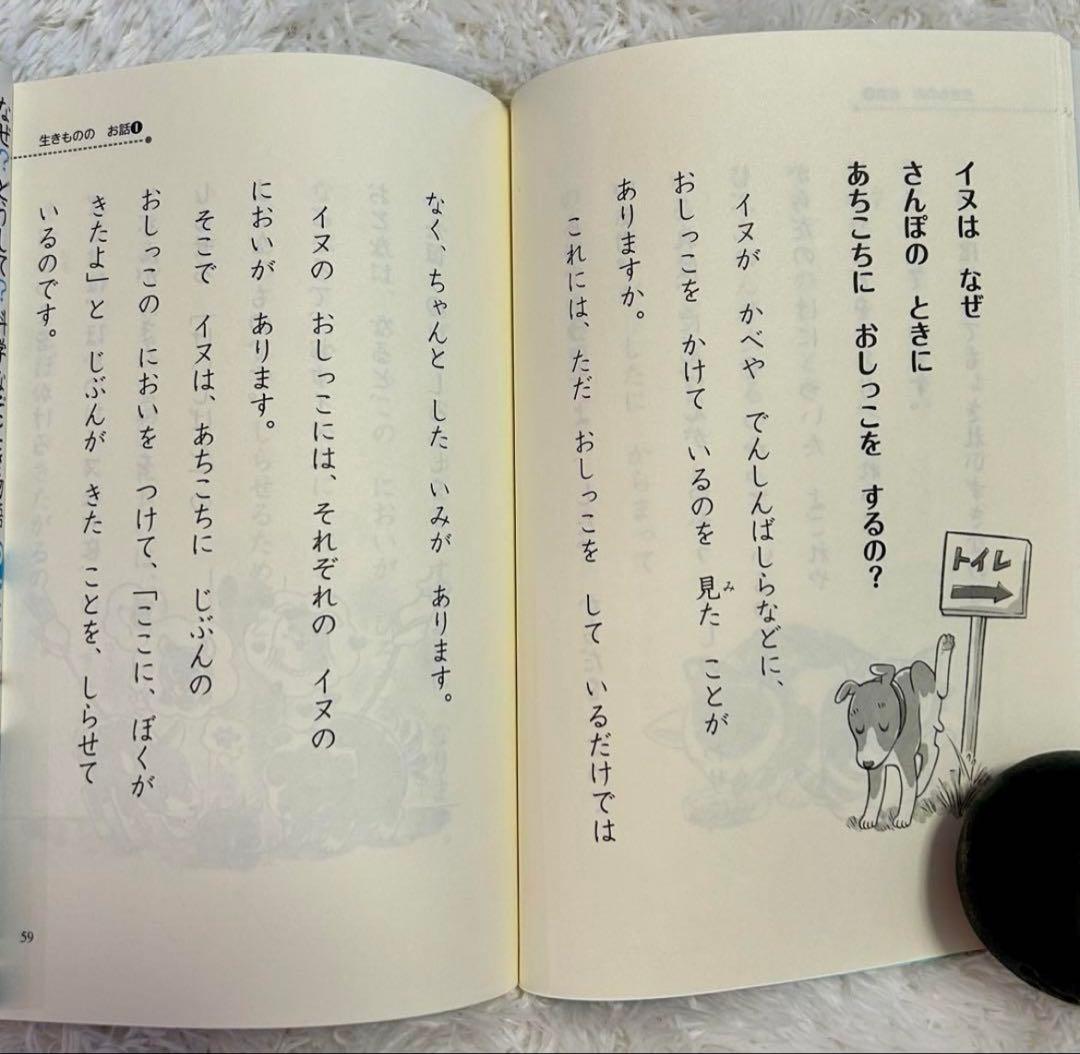 イヌは なぜ
さんぽの ときに
あちこちに おしっこを するの?
トイレ
イヌが かべや でんしんばしらなどに、
おしっこを かけて いるのを 見た ことが
み
ありますか。
これには、ただ おしっこを して いるだけでは
生きものの お話❶
なく、ちゃんと した いみが あります。
イヌの おしっこには、それぞれの イヌの
においが あります。
そこで イヌは、あちこちに じぶんの
おしっこの においを つけて、「ここに、ぼくが
きたよ」と じぶんが きた ことを、しらせて
いるのです。
59